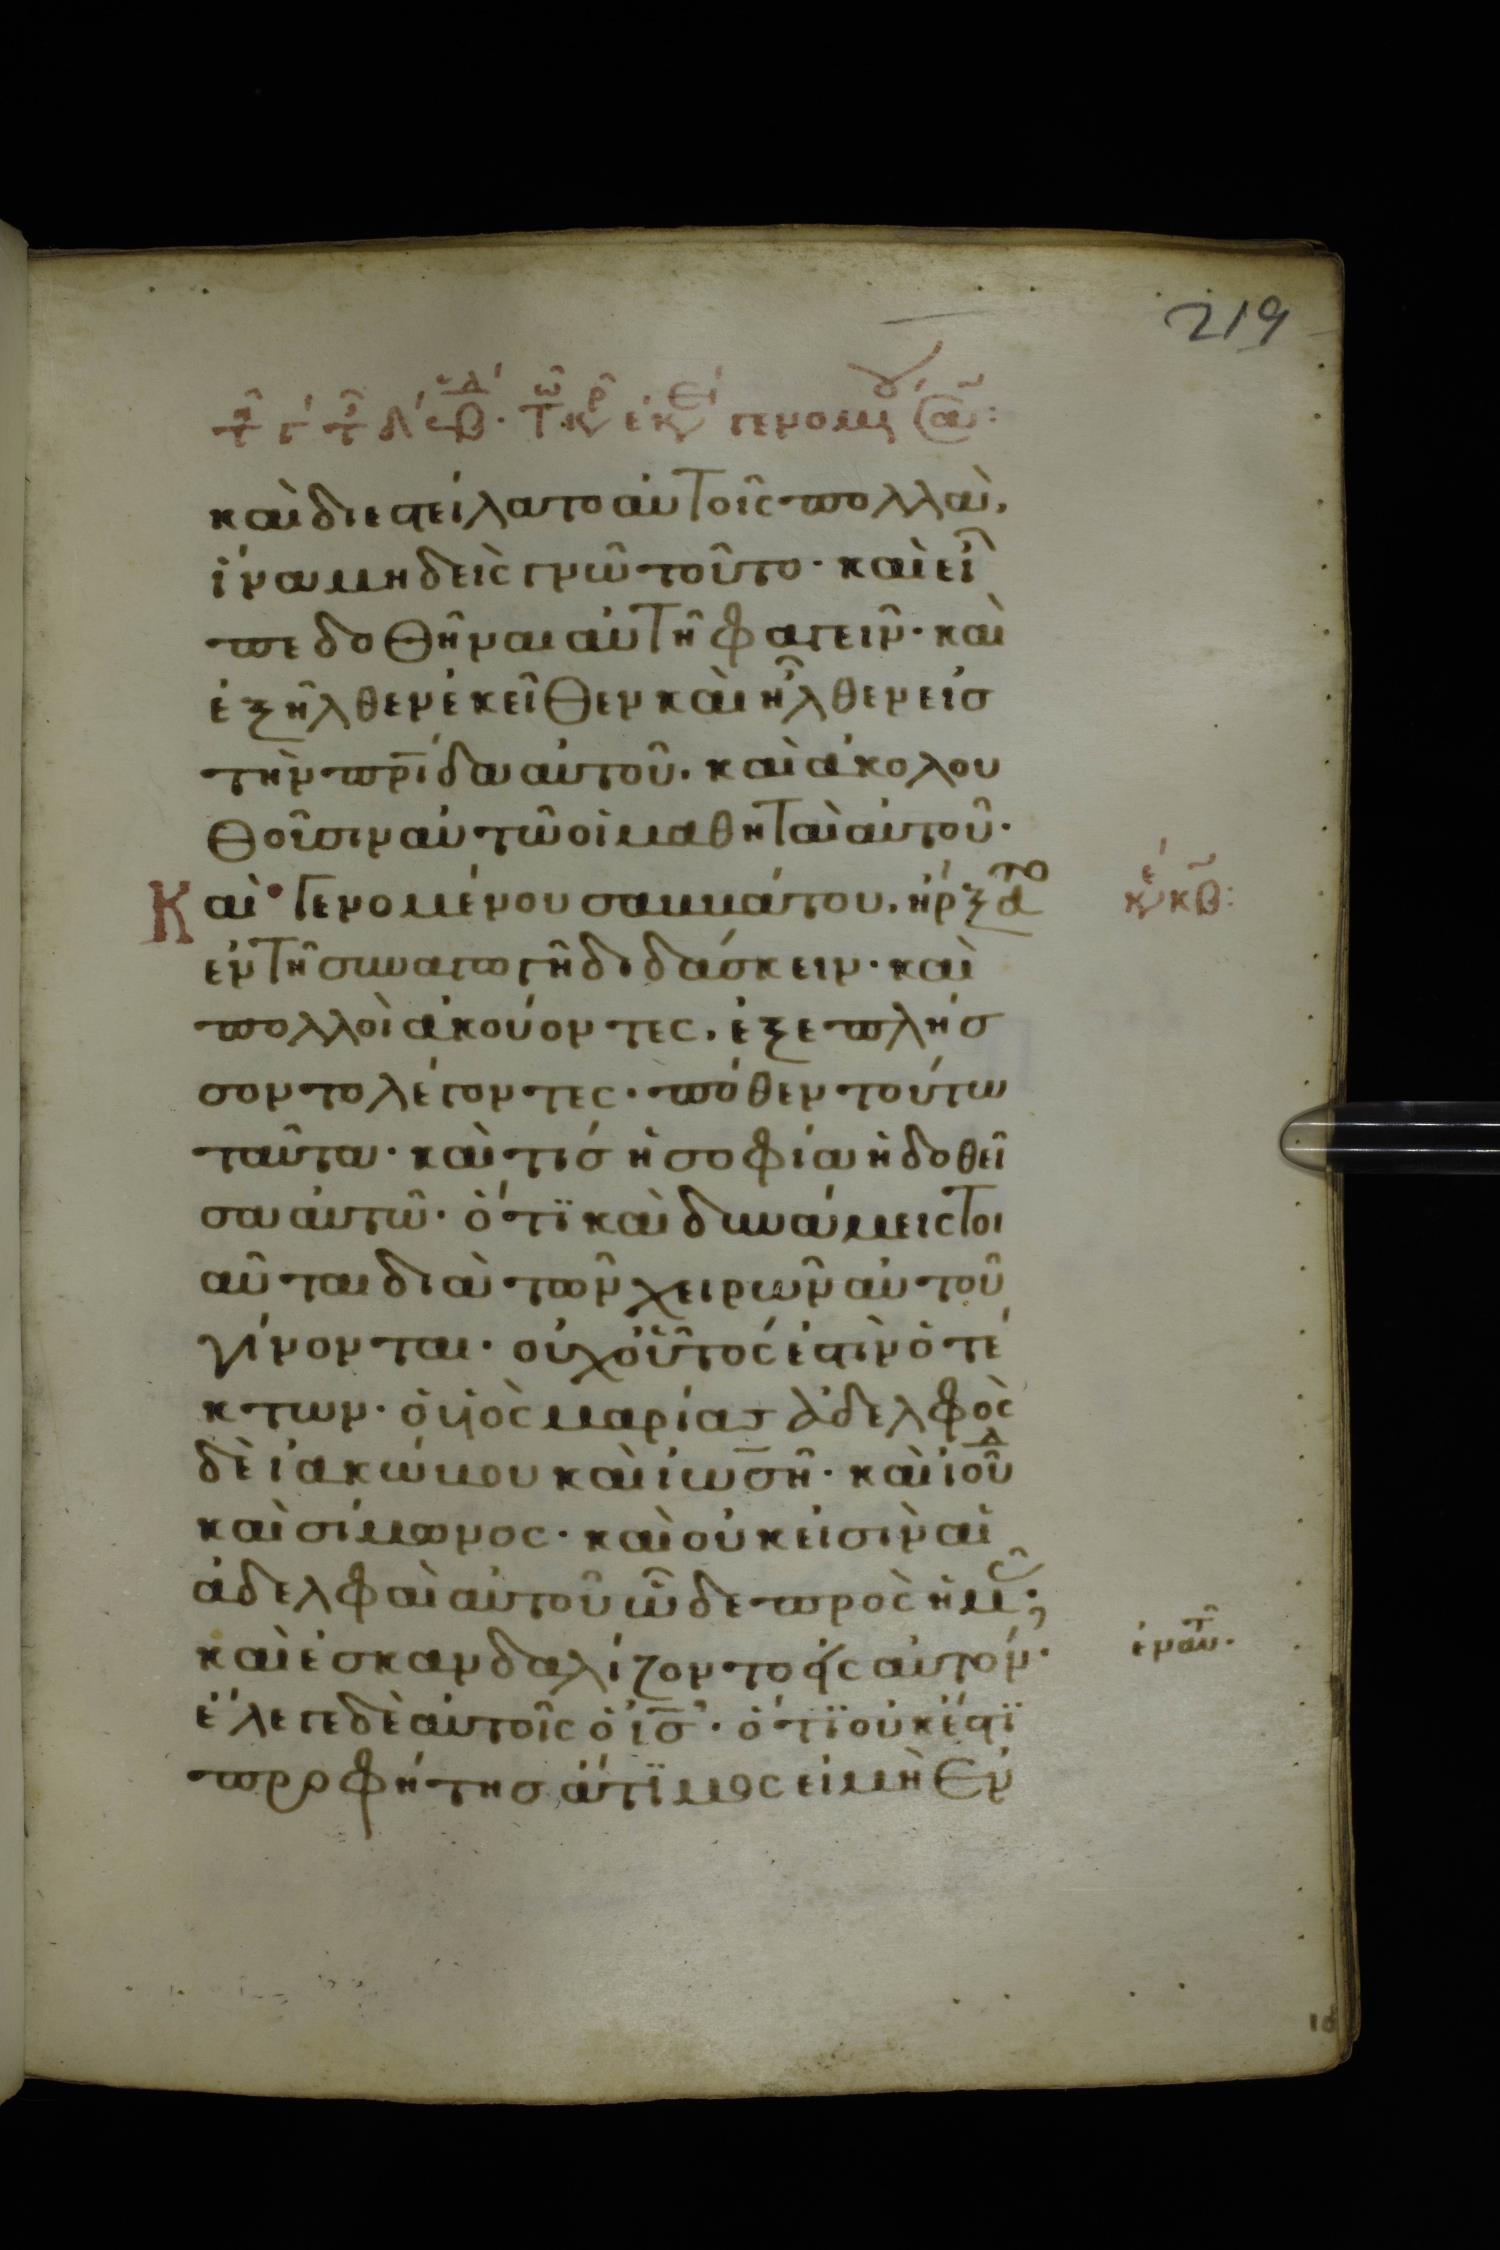 219
καὶ διεστείλατο αὐτοῖς πολλὰ,
ἵνα μηδεὶς γνῶ τοῦτο· καὶ εἶ
πε δοθῆναι αὐτῆ φαγεῖν· καὶ
ἐξῆλθεν ἐκεῖθεν καὶ ἦλθεν εἰσ
τὴν πρίδα αὐτοῦ. καὶ ἀκολου
θοῦσιν αὐτῶ οἱ μαθηταὶ αὐτοῦ·
Καὶ γενομένου σαββάτου, ἤρξατο
ἐν τῆ συναγωγῆ διδάσκειν· καὶ
πολλοὶ ἀκούοντες, ἐξεπλήσ
σοντο λέγοντες· πόθεν τούτω
ταῦτα· καὶ τίσ ἡ σοφία ἡ δοθεῖ
σα αὐτῶ· ὅτϊ καὶ δυνάμεις τοι
αῦται διὰ τῶν χειρῶν αὐτοῦ
γίνονται· οὐχ οὗτός ἐστιν ὁ τέ
κτων· ὁ υἱὸς μαρίας ἀδελφὸς
δὲ ἰακώβου καὶ ἰωσῆ· καὶ ἰούδ
καὶ σίμωνος· καὶ οὐκ εἰσὶν αἱ
ἀδελφαὶ αὐτοῦ ὧδε πρὸς ἡμᾶς;
καὶ ἐσκανδαλίζοντο ἐν αὐτῶ·
ἔλεγε δὲ αὐτοῖς ὁ ἰσ· ὅτϊ οὐκ ἔστϊ
προφήτησ ἄτϊμος εἰ μὴ ἐν